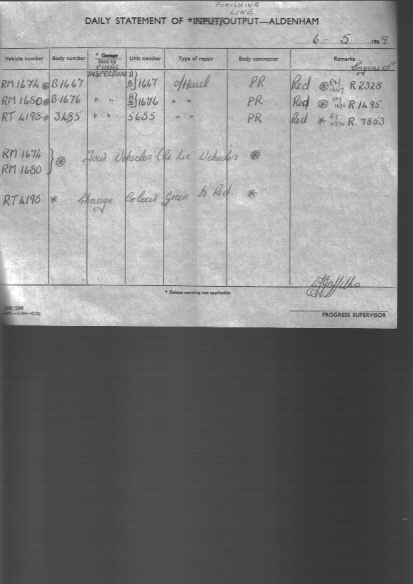 FINISHING
LINE
DAILY STATEMENT OF *INPUT/OUTPUT—ALDENHAM
6 - 5 1969
Vehicle number Body number * Garage Sent to Unit numbers Type of repair Body contractor Remarks Engine No
FINAL
INSPECTION
RM 1674 B1667 A) B) 1667 o/Haul PR Red RM 1667 R 2328
RM 1680 B1676 " " A) B) 1676 " " PR Red RM R 1495
RT 4195 * 3485 " " 5655 " " PR Red * RT R 7853
RM 1674
RM 1680 Vehicles (Re Lic Vehicles
RT 4195 * Change Colour Green to Red. *
* Delete wording not applicable
PROGRESS SUPERVISOR